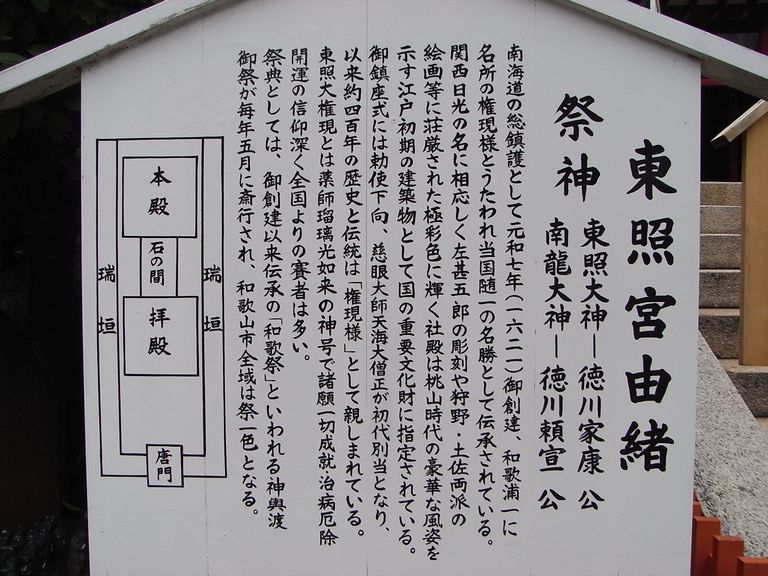 東照宮由緒
祭神 東照大神―徳川家康 公
南龍大神―徳川頼宣 公
南海道の総鎮護として元和七年(一六二一)御創建、和歌浦一に
名所の権現様とうたわれ当国随一の名勝として伝承されている。
関西日光の名に相応しく左甚五郎の彫刻や狩野・土佐両派の
絵画等に荘厳された極彩色に輝く社殿は桃山時代の豪華な風姿を
示す江戸初期の建築物として国の重要文化財に指定されている。
御鎮座式には勅使下向、慈眼大師天海大僧正が初代別当となり、
以来約四百年の歴史と伝統は「権現様」として親しまれている。
東照大権現とは薬師瑠璃光如来の神号で諸願一切成就・治病厄除
開運の信仰深く全国よりの賽者は多い。
祭典としては、御創建以来伝承の「和歌祭」といわれる神輿渡
御祭が毎年五月に斎行され、和歌山市全域は祭一色となる。
本殿
石の間
拝殿
瑞垣
瑞垣
唐門